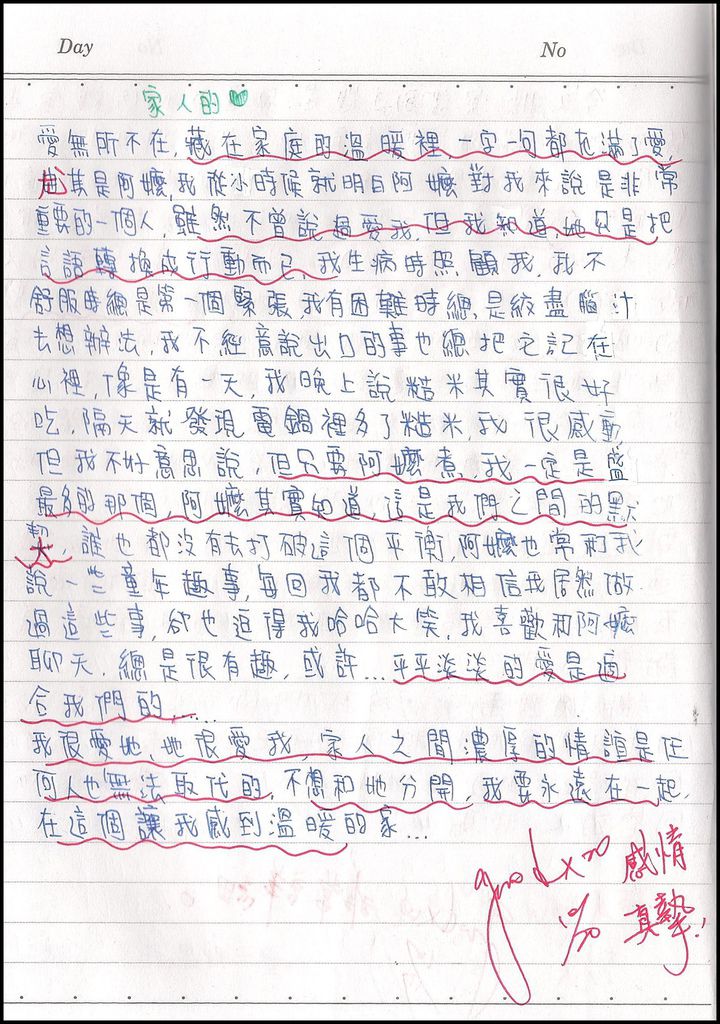 Day No
家人的♥
愛無所不在,藏在家庭的溫暖裡,一字一句都充滿了愛,
尤其是阿嬤,我從小時候就明白阿嬤對我來說是非常
重要的一個人,雖然不曾說過愛我,但我知道,她只是把
言語轉換成行動而已,我生病時照顧我,我不
舒服時總是第一個緊張,我有困難時總是絞盡腦汁
去想辦法,我不經意說出口的事也總把它記在
心裡,像是有一天,我晚上說糙米其實很好
吃,隔天就發現電鍋裡多了糙米,我很感動
但我不好意思說,但只要阿嬤煮,我一定是盛
最多的那個,阿嬤其實知道,這是我們之間的默
契,誰也都沒有去打破這個平衡,阿嬤也常和我
說一些童年趣事,每回我都不敢相信我居然做
過這些事,卻也逗得我哈哈大笑,我喜歡和阿嬤
聊天,總是很有趣,或許...平平淡淡的愛是適
合我們的......
我很愛她,她很愛我,家人之間濃厚的情誼是任
何人也無法取代的,不想和她分開,我要永遠在一起,
在這個讓我感到溫暖的家...
good x 20 感情
真摯!